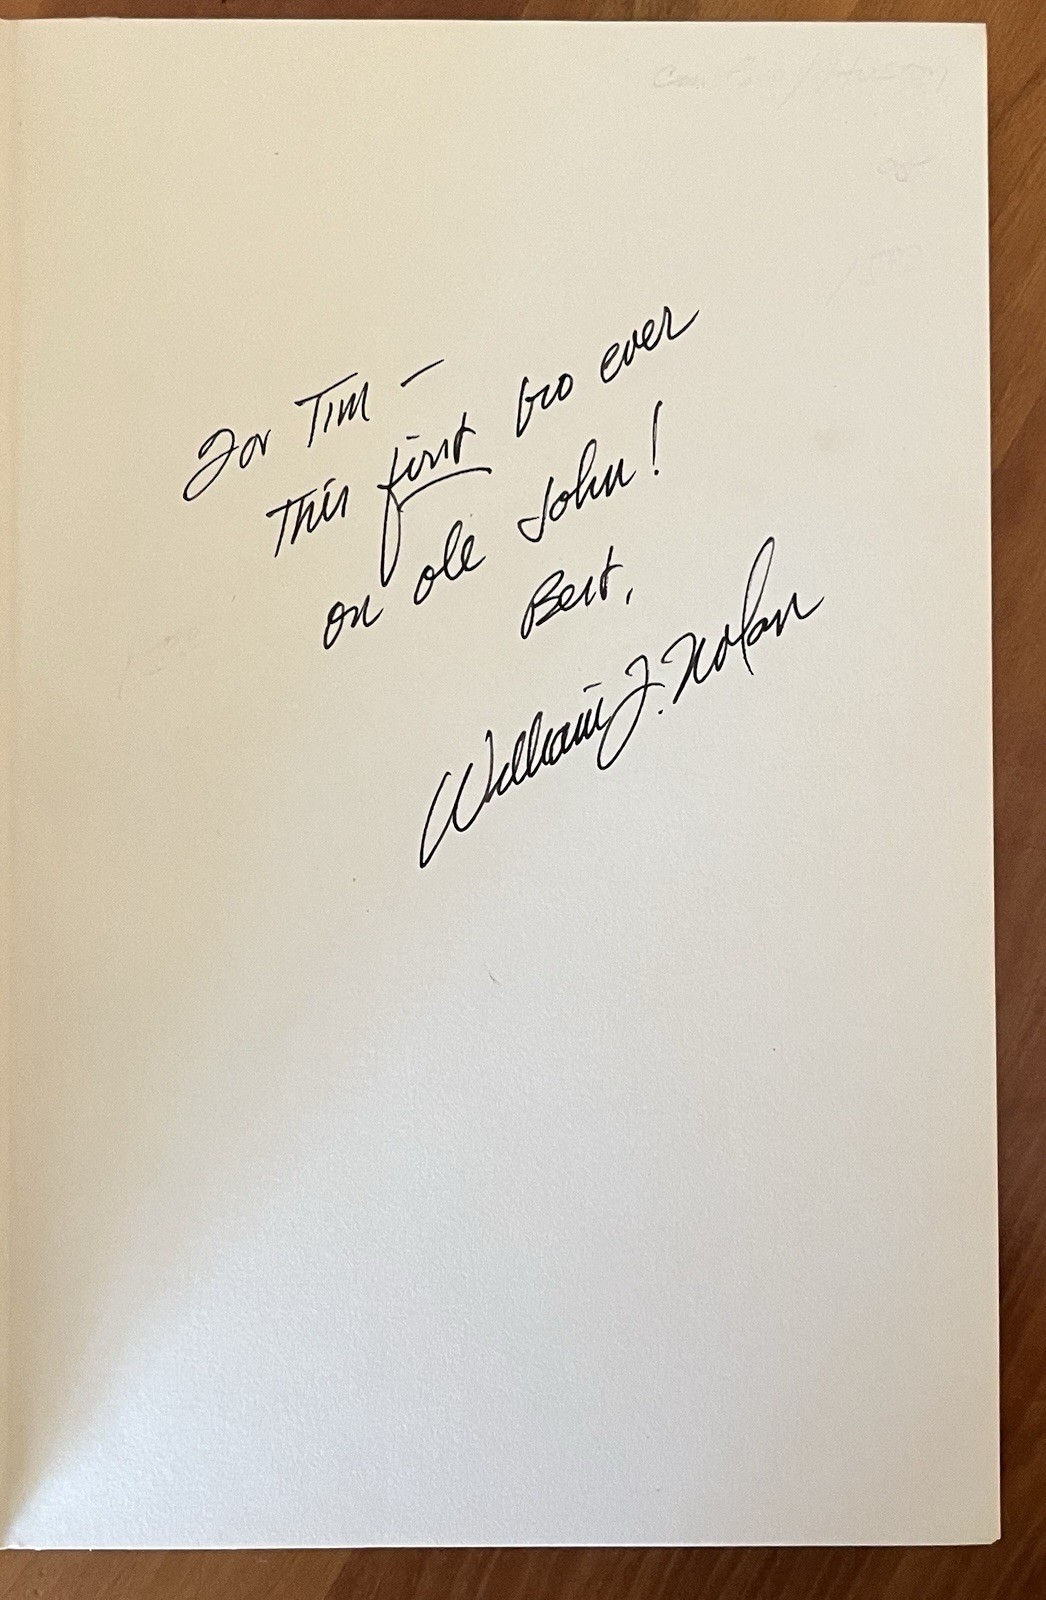 For Tim –
This first bio ever
on ole John!
Best,
William F. Nolan